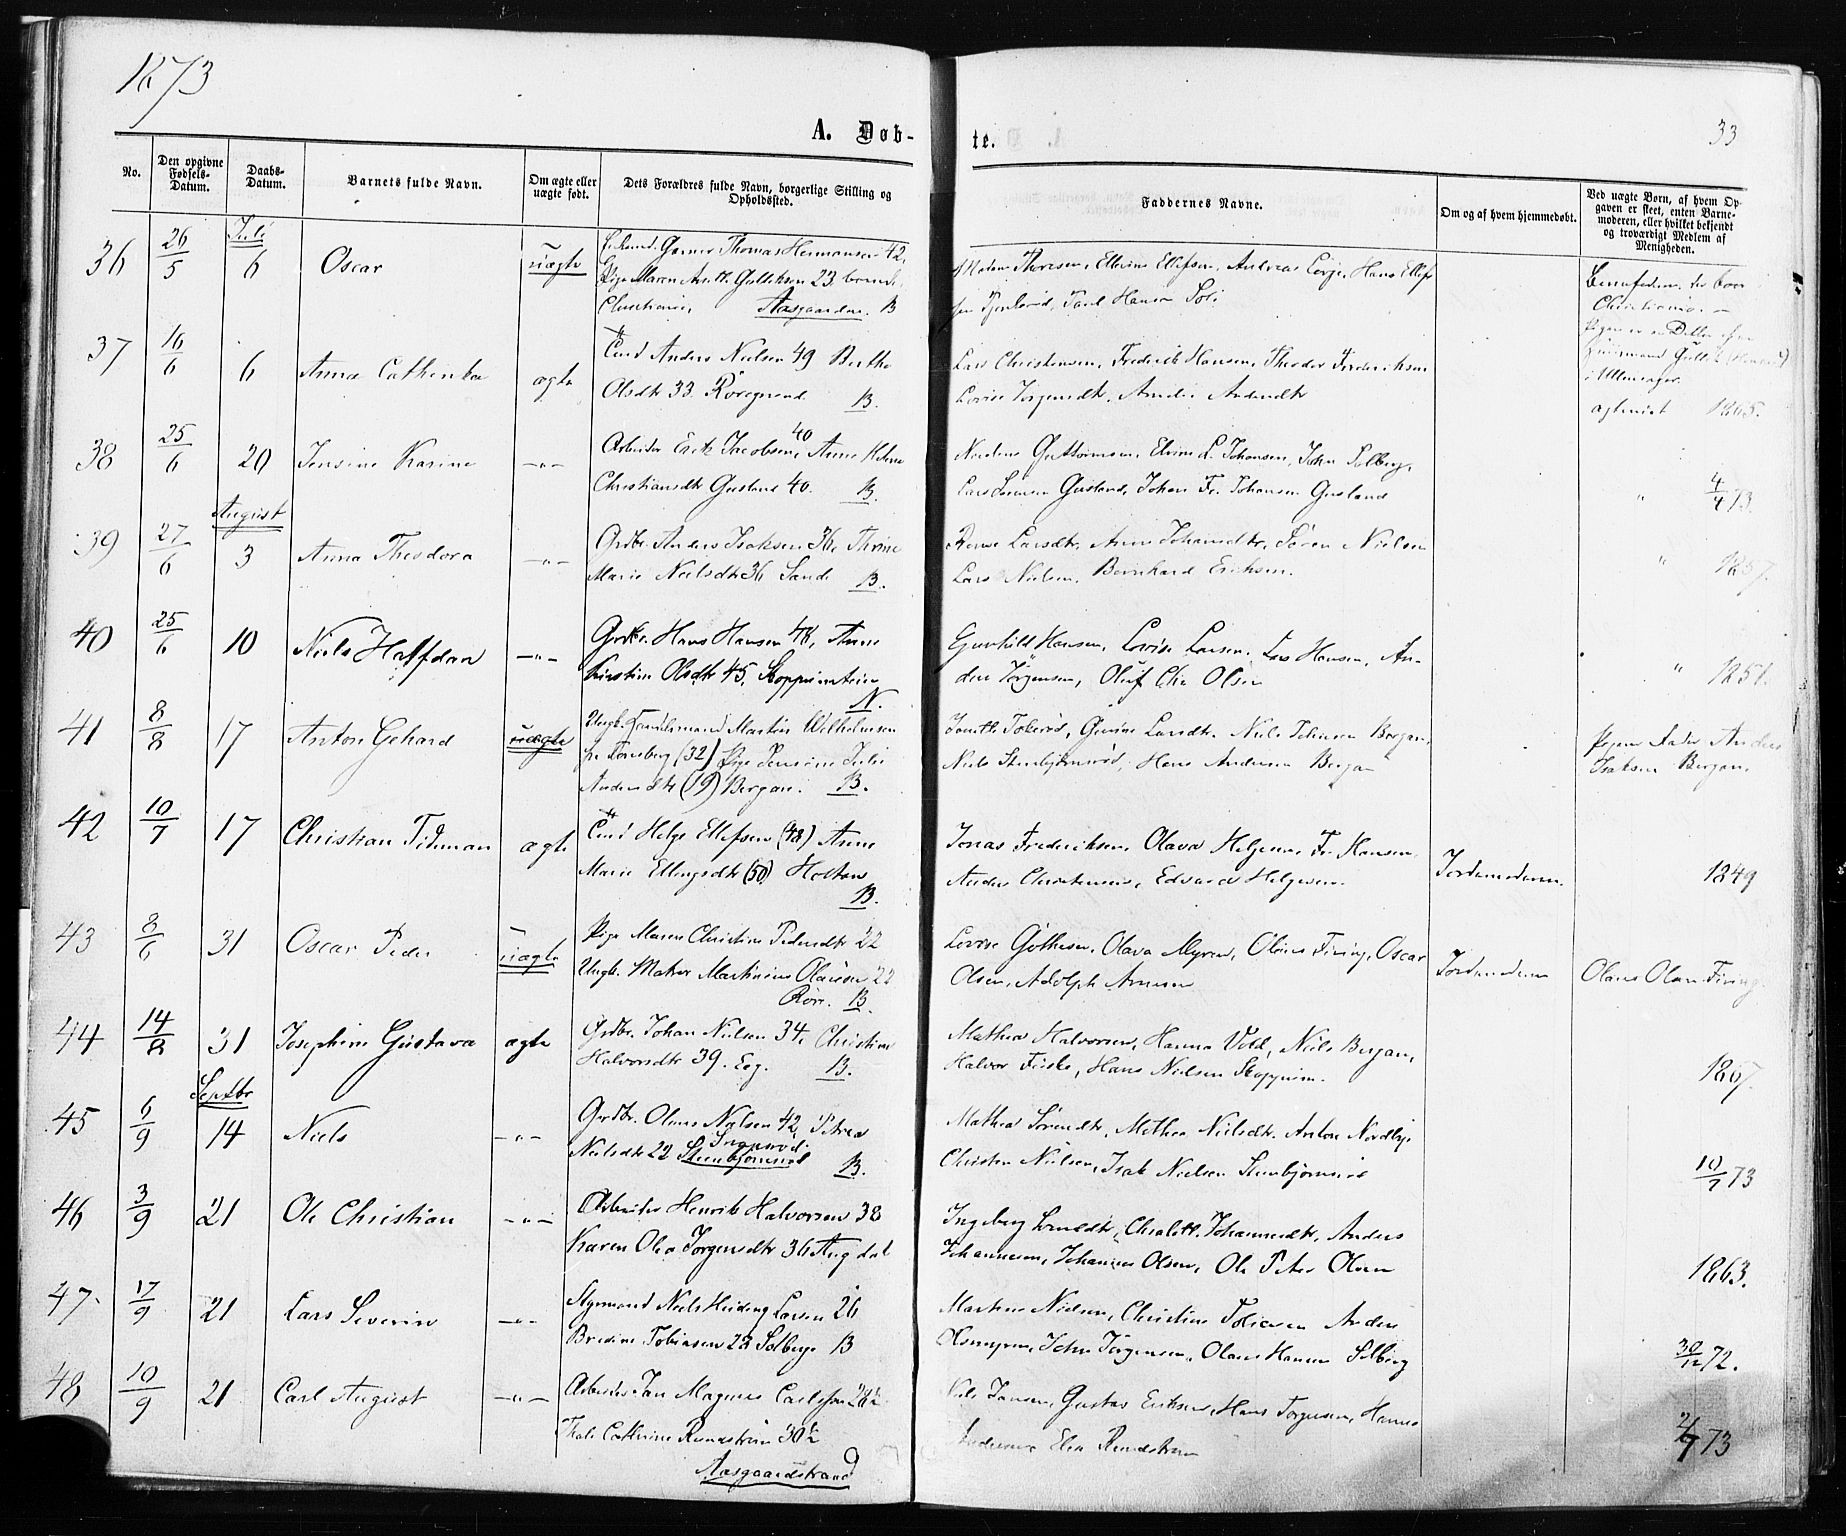 1873
33
A. Døb-
te.
No.
Den opgivne Fødsels-Datum.
Daabs-Datum.
Barnets fulde Navn.
Om ægte eller uægte født.
Dets Forældres fulde Navn, borgerlige Stilling og Opholdssted.
Faddernes Navne.
Om og af hvem hjemmedøbt.
Ved uægte Børn, af hvem Opgaven er skeet, enten Barnemoderen, eller hvilket bekjendt og troværdigt Medlem af Menigheden.
Juli
36 26/5 6 Oscar uægte Garver Thomas Hermansen 42,
Pige Maren 23
Christiania, Aasgaarden. B
Thoresen, Ellevine Ellefsen, Andreas Hans
Paul Hansen
Christiania
37 16/6 6 Anna Cathinka ægte Anders Nielsen 49 Berthe
Olsdtr 33 B.
Lars Christensen, Frederik Hansen, Theodor Frederiksen
Lovise Jørgensdtr, Andersdtr
1865.
38 25/6 20 Jensine Karine -"- Arbeider Erik Jacobsen 40, Anne Helene
Christiansdtr Gusland 40. B.
Guttormsen, L. Johansen, John Solberg,
Lars Gusland, Johan Fr. Johansen Gusland
" 4/4 73.
August
39 27/6 3 Anna Theodora -"- Grdbr. Anders Isaksen 36, Thrine
Marie Nielsdtr 36 Sande B.
Larsdtr, Anne Johansdtr, Søren Nielsen
Lars Nielsen, Bernhard Eriksen.
" 1857.
40 25/6 10 Niels Halfdan -"- Grdbr. Hans Hansen 48, Anne
Kirstine Olsdtr 45, N.
Gunhild Hansen, Lovise Larsen, Lars Hansen, An-
ders Jørgensen, Oluf Chr Olsen
" 1851.
41 8/8 17 Anton Gehard uægte Ungk. Handelsmand Martin Wilhelmsen
fra Tønsberg (32) Pige Jensine Julie
Andersdtr (19) Bergan. B.
Larsdtr. Niels Johnsen Bergan,
Niels Stenbjørnrød, Hans Andersen Bergan
Pigens Fader Anders
Isaksen Bergan.
42 10/7 17 Christian Tidman ægte Helge Ellefsen (48) Anne
Marie Ellingsdtr (50) Holtan
B.
Jonas Frederiksen, Olava Helgesen, Fr. Hansen,
Anders Christensen, Edvard Helgesen.
Jordemoderen.
1849
43 8/6 31 Oscar Peder uægte Pige Maren Christine Pedersdtr 22
Ungk. Matros Martinius Olausen 22
Rørr. B.
Lovise Gøthesen, Olava Myren, Olaus Firing, Oscar
Olsen, Adolph Arnesen
Jordemoderen
Olaus Olsen Firing
44 14/8 31 Josephine Gustava ægte Grdbr. Johan Nielsen 34, Christine
Halvorsdtr 39. Eeg. B.
Mathea Halvorsen, Hanna Vold, Niels Bergan,
Halvor Fiske, Hans Nielsen Skoppum.
1867.
Septbr
45 6/9 14 Niels -"- Grdbr. Olaus Nilsen 42, Petrea
Nielsdtr 22 Stenbjørnrød B.
Mathea Sørensdtr, Mathea Nielsdtr. Anton Nordby,
Christen Nielsen, Isak Nielsen Stenbjørnrød
10/7 73
46 3/9 21 Ole Christian -"- Arbeider Henrik Halvorsen 38
Karen Olea Jørgensdtr 36 Augedal
Ingeborg Charlotte Johannesdtr, Anders
Johannesen, Johannes Olsen, Ole Peter Olsen
1863.
47 17/9 21 Lars Severin -"- Styrmand Niels Larsen 26
Bredine Tobiasen 22 Solberg B
Martine Nielsen, Christine Tobiasen Anders
John Jørgensen, Olaus Hansen Solberg
30/12 72.
48 10/9 21 Carl August -"- Arbeider Jan Magnus Carlsson 28½
Thale Cathrine Rundstrøm 30½
Aasgaardstrand
Nils Jansen, Gustav Eriksen, Hans Torgersen, Hanna
Andersen Elen Rundstrøm
2/7 73